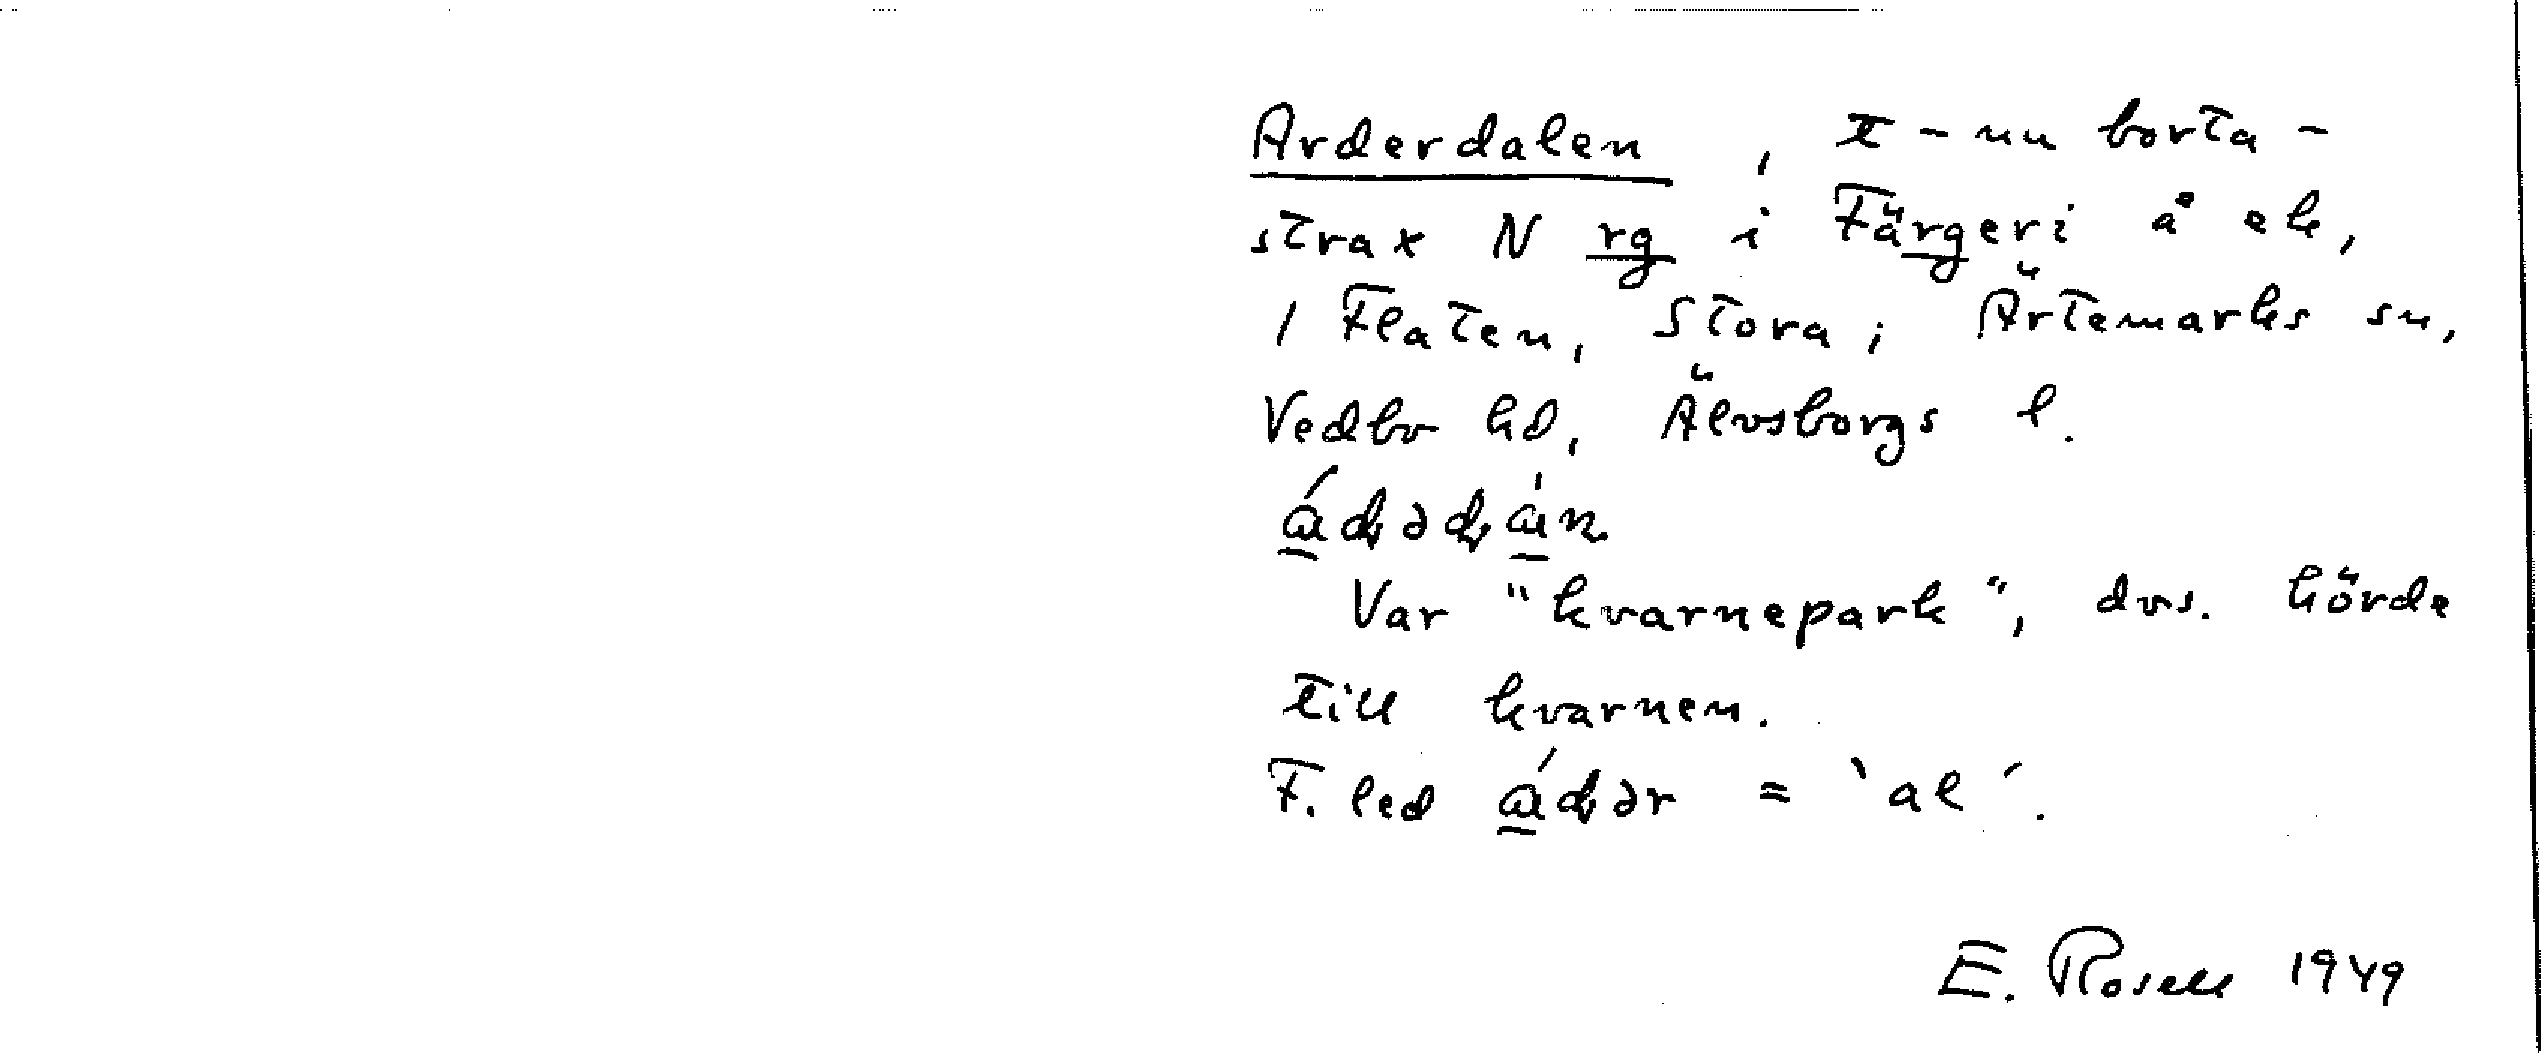 Arderdalen, t - nu borta -
strax N rg i Färgeri å ek,
1 Flaten, Stora, Ärtemarks sn,
Vedbo hd, Älvsborgs l.
Var "kvarnepark", dvs. hörde
till kvarnen.
F. led = `al´.
E. Rosell 1949